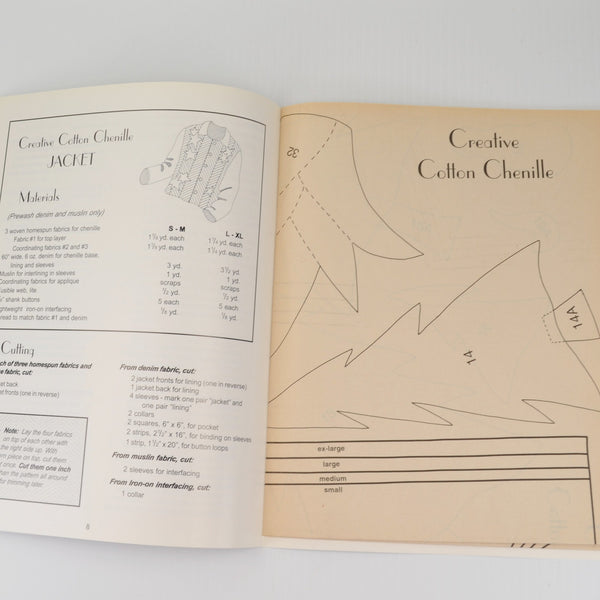 Creative Cotton Chenille
JACKET
Materials
(Prewash denim and muslin only)
S - M
L - XL
3 woven homespun fabrics for chenille
Fabric #1 for top layer
1¾ yd. each
1¾ yd. each
Coordinating fabrics #2 and #3
60" wide, 6 oz. denim for chenille base,
lining and sleeves
3 yd.
3½ yd.
Muslin for interlining in sleeves
1 yd.
1 yd.
Coordinating fabrics for applique
scraps
scraps
usible web, lite
½ yd.
½ yd.
" shank buttons
5 each
5 each
ghtweight iron-on interfacing
⅛ yd.
⅛ yd.
read to match fabric #1 and denim
Cutting
ch of three homespun fabrics and
e fabric, cut:
et back
et fronts (one in reverse)
Note: Lay the four fabrics
on top of each other with
the right side up. With
rn piece on top, cut them
t once. Cut them one inch
than the pattern all around
for trimming later.
From denim fabric, cut:
2 jacket fronts for lining (one in reverse)
1 jacket back for lining
4 sleeves - mark one pair "jacket" and
one pair "lining"
2 collars
2 squares, 6" x 6", for pocket
2 strips, 2½" x 16", for binding on sleeves
1 strip, 1½" x 20", for button loops
From muslin fabric, cut:
2 sleeves for interfacing
From Iron-on interfacing, cut:
1 collar
Creative
Cotton Chenille
32
14
14A
ex-large
large
medium
small